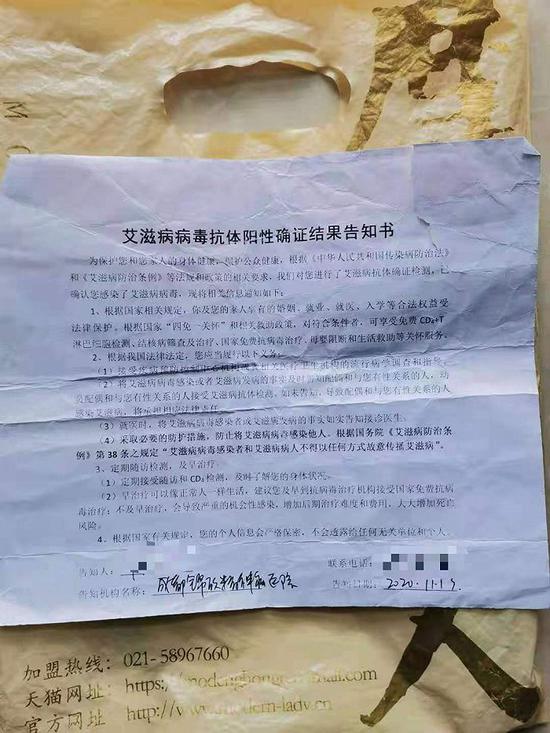 艾滋病病毒抗体阳性确证结果告知书
为保护您和您家人的身体健康，维护公众健康，根据《中华人民共和国传染病防治法》
和《艾滋病防治条例》等法规和政策的相关要求，我们对您进行了艾滋病抗体确证检测，已
确认您感染了艾滋病病毒。现将相关信息通知如下：
1、根据国家相关规定，你及您的家人享有的婚姻、就业、就医、入学等合法权益受
法律保护。根据国家“四免一关怀”和相关救助政策，对符合条件者，可享受免费 CD4+T
淋巴细胞检测、结核病筛查及治疗、国家免费抗病毒治疗、母婴阻断和生活救助等关怀服务。
2、根据我国法律法定，您应当履行以下义务：
（1）接受疾病预防控制中心机构或相关医疗卫生机构的流行病学调查和指导。
（2）将艾滋病病毒感染或者艾滋病发病的事实及时告知配偶和与您有性关系的人，动
员配偶和与您有性关系的人接受艾滋病抗体检测，如未告知，导致配偶和与您有性关系的人
感染艾滋病，将承担相应法律责任。
（3）就医时，将艾滋病病毒感染者或艾滋病发病的事实如实告知接诊医生。
（4）采取必要的防护措施，防止将艾滋病病毒感染他人。根据国务院《艾滋病防治条
例》第 38 条之规定“艾滋病病毒感染者和艾滋病病人不得以任何方式故意传播艾滋病”。
3、定期随访检测，及早治疗。
（1）定期接受随访和 CD4 检测，及时了解您的身体状况。
（2）早治疗可以像正常人一样生活，建议您及早到抗病毒治疗机构接受国家免费抗病
毒治疗；不及早治疗，会导致严重的机会性感染，增加后期治疗难度和费用，大大增加死亡
风险。
4、根据国家有关规定，您的个人信息会严格保密，不会透露给任何无关单位和个人。
告知人：
联系电话：
告知机构名称： 成都锦欣精神病医院
告知日期： 2020.11.19
加盟热线：021-58967660
天猫网址：https://modenghong
官方网址 http://www.modern-lady.cn